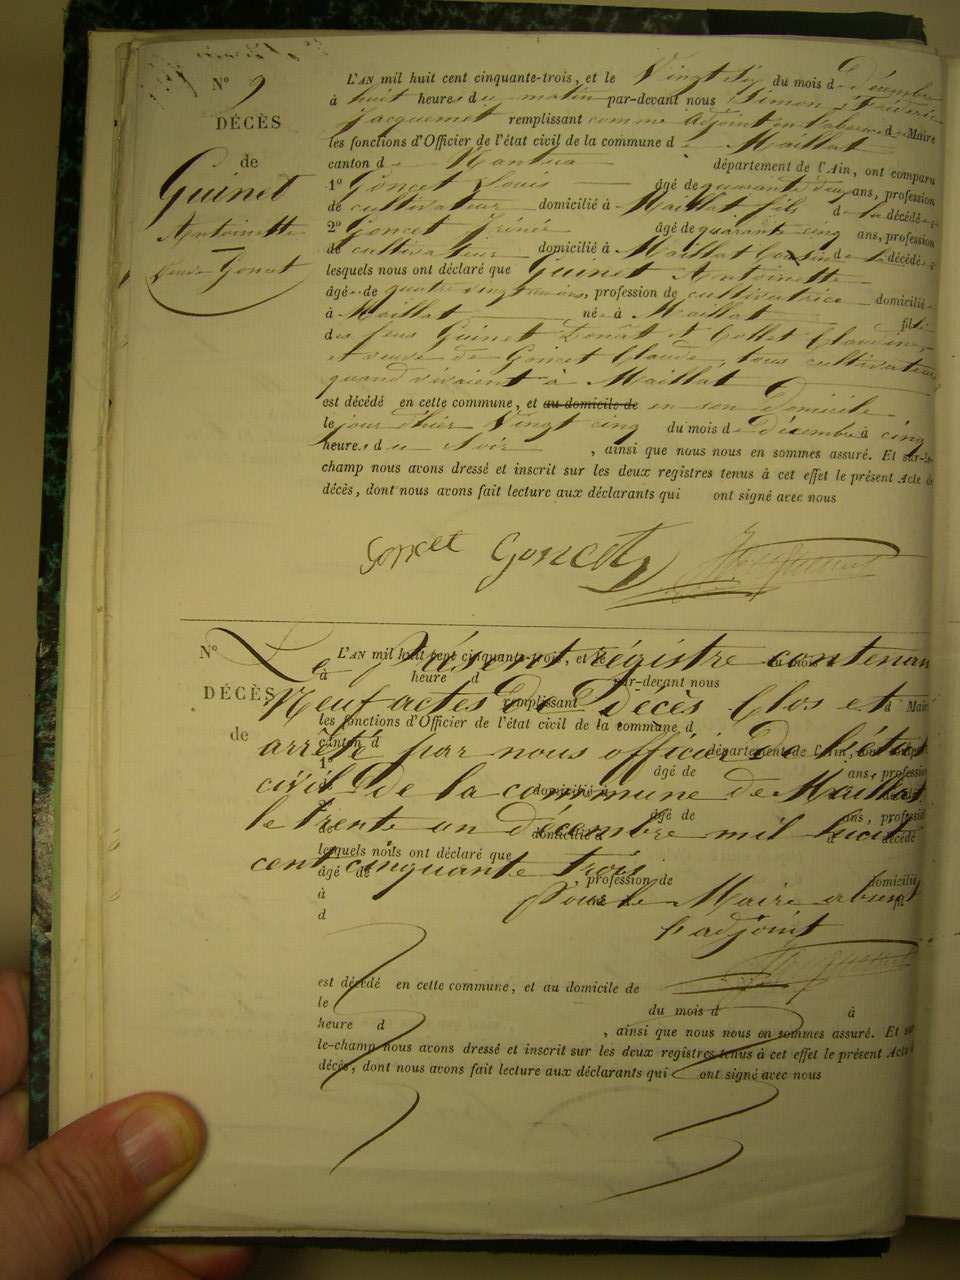 N° 9
DÉCÈS
de
Guinet
Antoinette
veuve Goncet
L'AN mil huit cent cinquante-trois, et le Vingt six du mois de Décembre
à huit heures du matin par-devant nous Simon
Jacquemet remplissant comme adjoint en l'absence du Maire
les fonctions d'Officier de l'état civil de la commune de Maillat
canton de Nantua département de l'Ain, ont comparu
1° Goncet Louis âgé de quarante deux ans, profession
de cultivateur domicilié à Maillat fils de la décédée
2° Goncet Irénée âgé de quarante cinq ans, profession
de cultivateur domicilié à Maillat Cousin de la décédée
lesquels nous ont déclaré que Guinet Antoinette
âgée de quatre vingt un ans, profession de cultivatrice domiciliée
à Maillat née à Maillat fille
des feus Guinet Donât et Collet Claudine,
et veuve de Goncet Claude, tous cultivateurs
quand vivaient à Maillat
est décédé en cette commune, et au domicile de en son Domicile
le jour d'hier Vingt cinq du mois de Décembre à cinq
heures du soir , ainsi que nous nous en sommes assuré. Et sur-le-
champ nous avons dressé et inscrit sur les deux registres tenus à cet effet le présent Acte de
décès, dont nous avons fait lecture aux déclarants qui ont signé avec nous
Goncet Goncet
N°
DÉCÈS
de
L'AN mil huit cent cinquante-trois, et le du mois
à heure d par-devant nous
remplissant d Maire
les fonctions d'Officier de l'état civil de la commune d
canton d département de l'Ain, ont comparu
1° âgé de ans, profession
de domicilié à d décédé
2° âgé de ans, profession
de domicilié à d décédé
lesquels nous ont déclaré que
âgé de , profession de domicilié
à né à fil
d
Le présent régistre contenant
Neuf actes de Décès Clos et
arrêté par nous officier de l'état
civil de la commune de Maillat
le trente un décembre mil huit
cent cinquante trois
Pour le Maire absent
l'adjoint
est décédé en cette commune, et au domicile de
le du mois d à
heure d , ainsi que nous nous en sommes assuré. Et sur
le-champ nous avons dressé et inscrit sur les deux registres tenus à cet effet le présent Acte d
décès, dont nous avons fait lecture aux déclarants qui ont signé avec nous